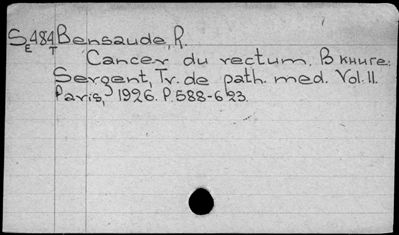 S 484 Bensaude, R.
E T
Cancer du rectum. В книге:
Sergent, Tr. de path. med. Vol. II.
Paris, 1926. P. 588-623.